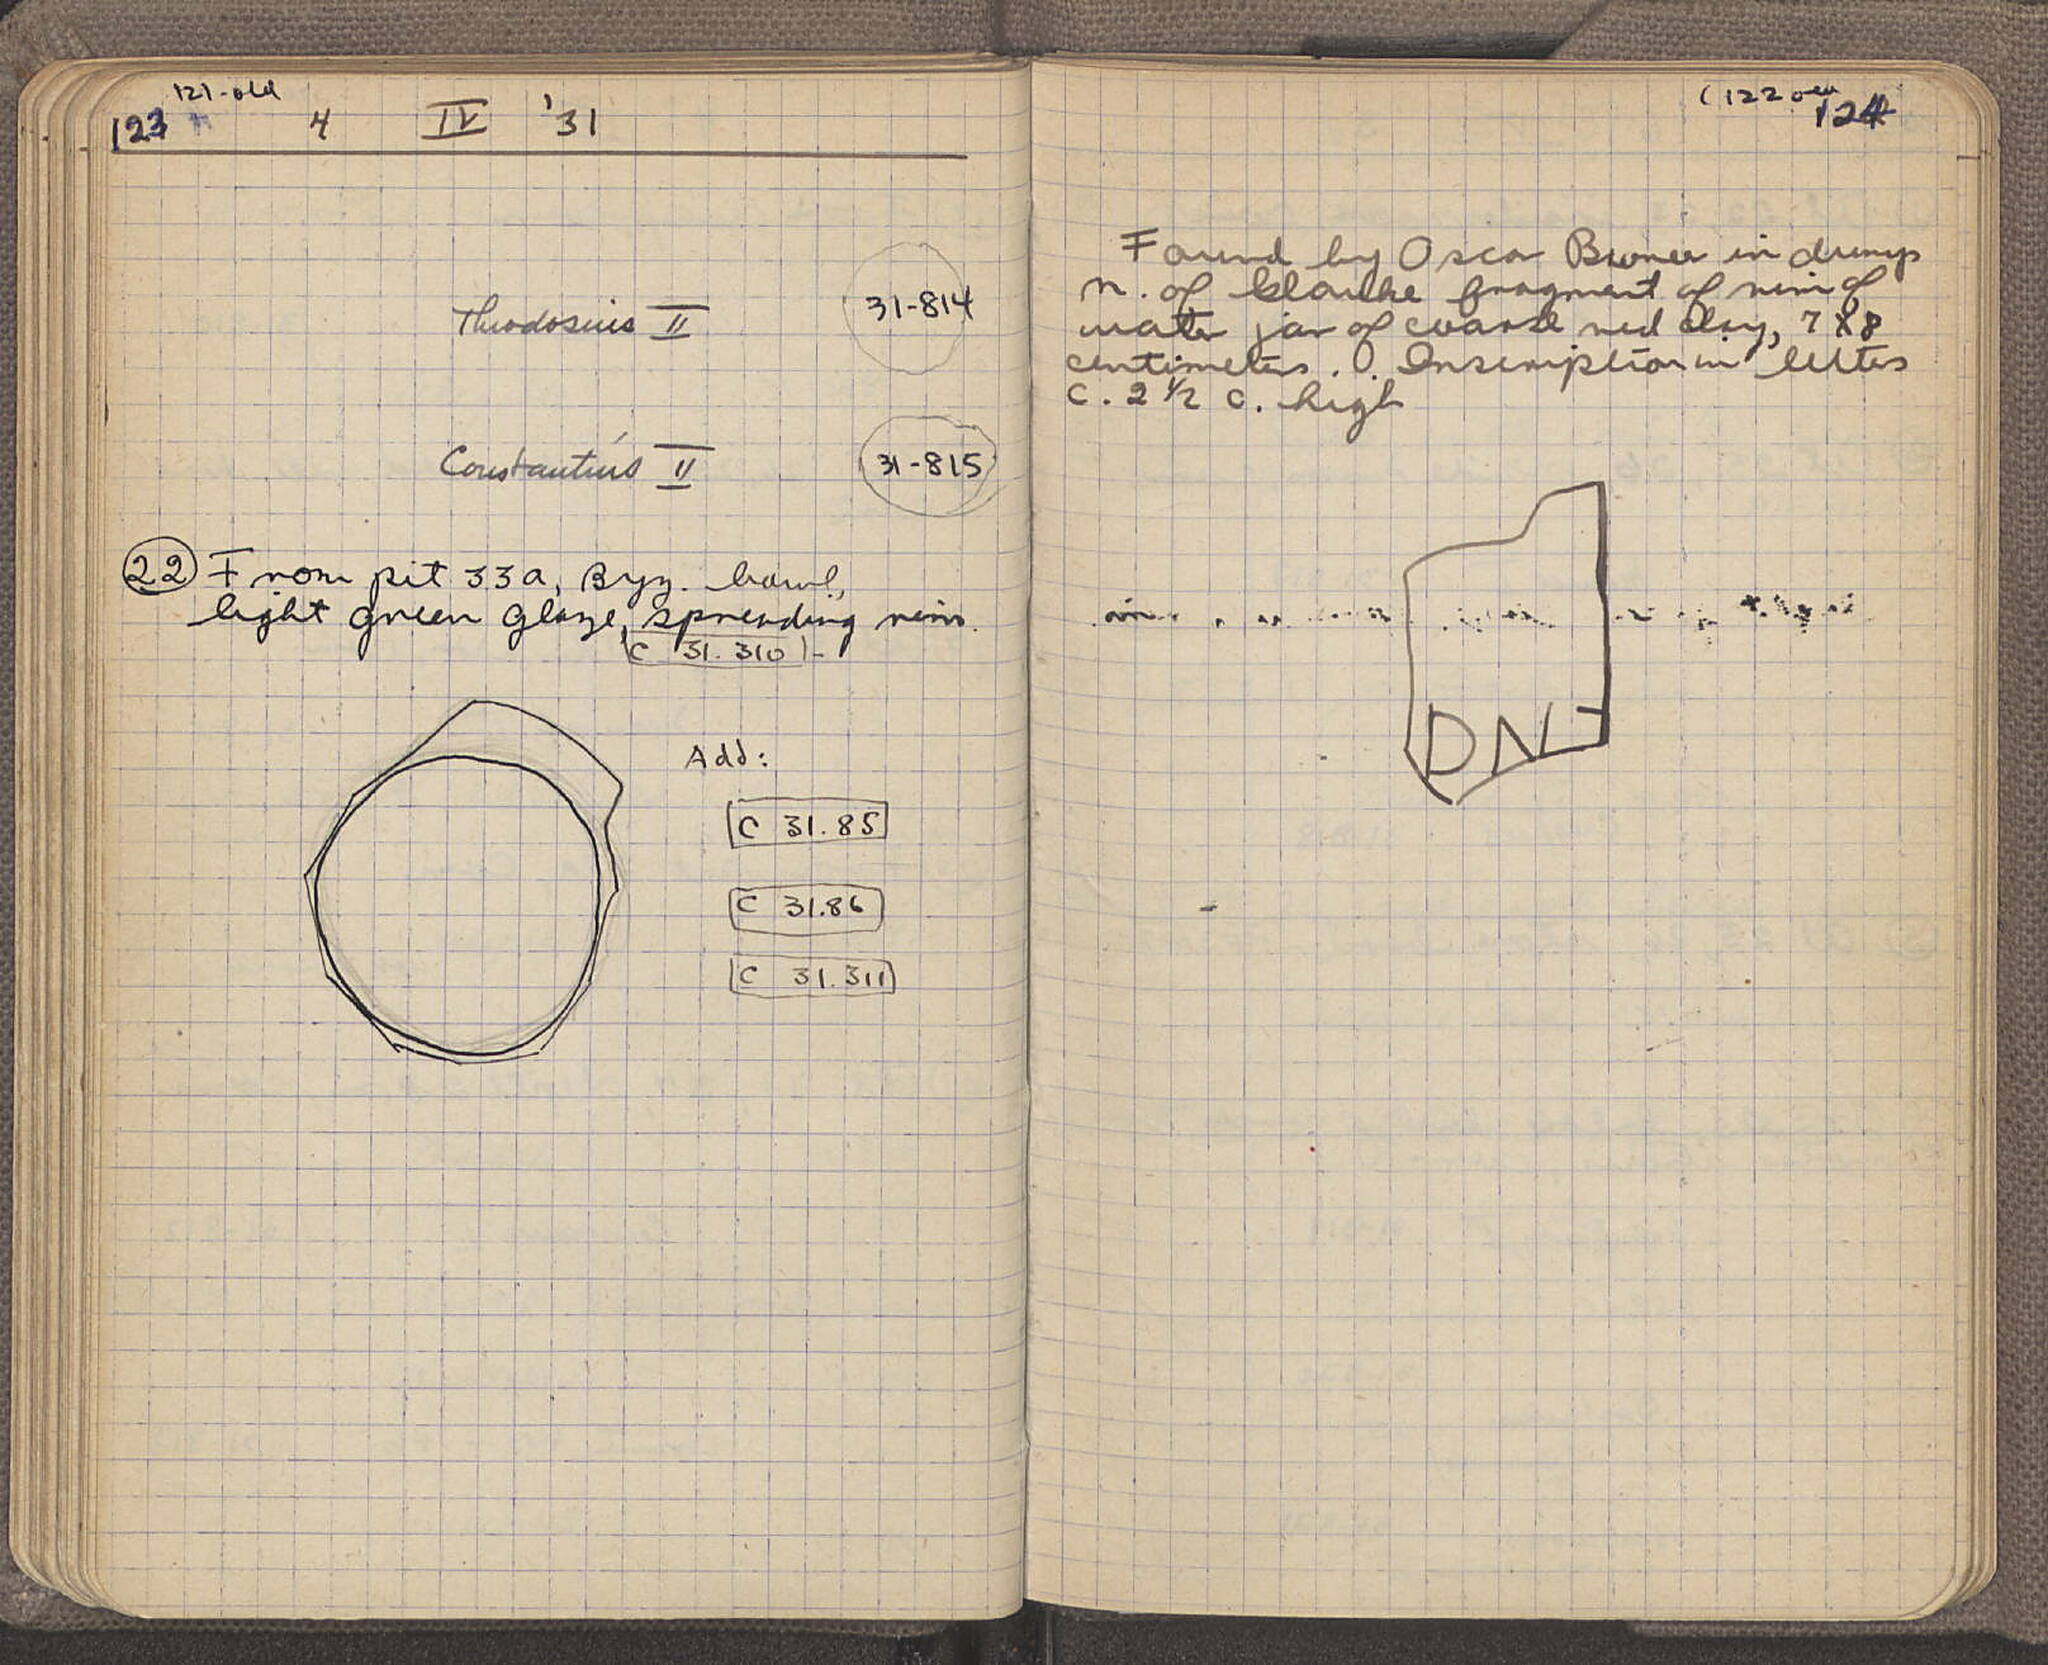 121-old
123 4 IV '31
Theodosius II 31-814
Constantius II 31-815
22 From pit 33a, Byz. bowl,
light green glaze, spreading rim.
C 31.310
Add:
C 31.85
C 31.86
C 31.311
(122 old
124
Found by Oscar Broneer in dump
n. of Glauke fragment of rim of
water jar of coarse red clay, 7 x 8
centimeters. Inscription in letters
c. 2 1/2 c. high